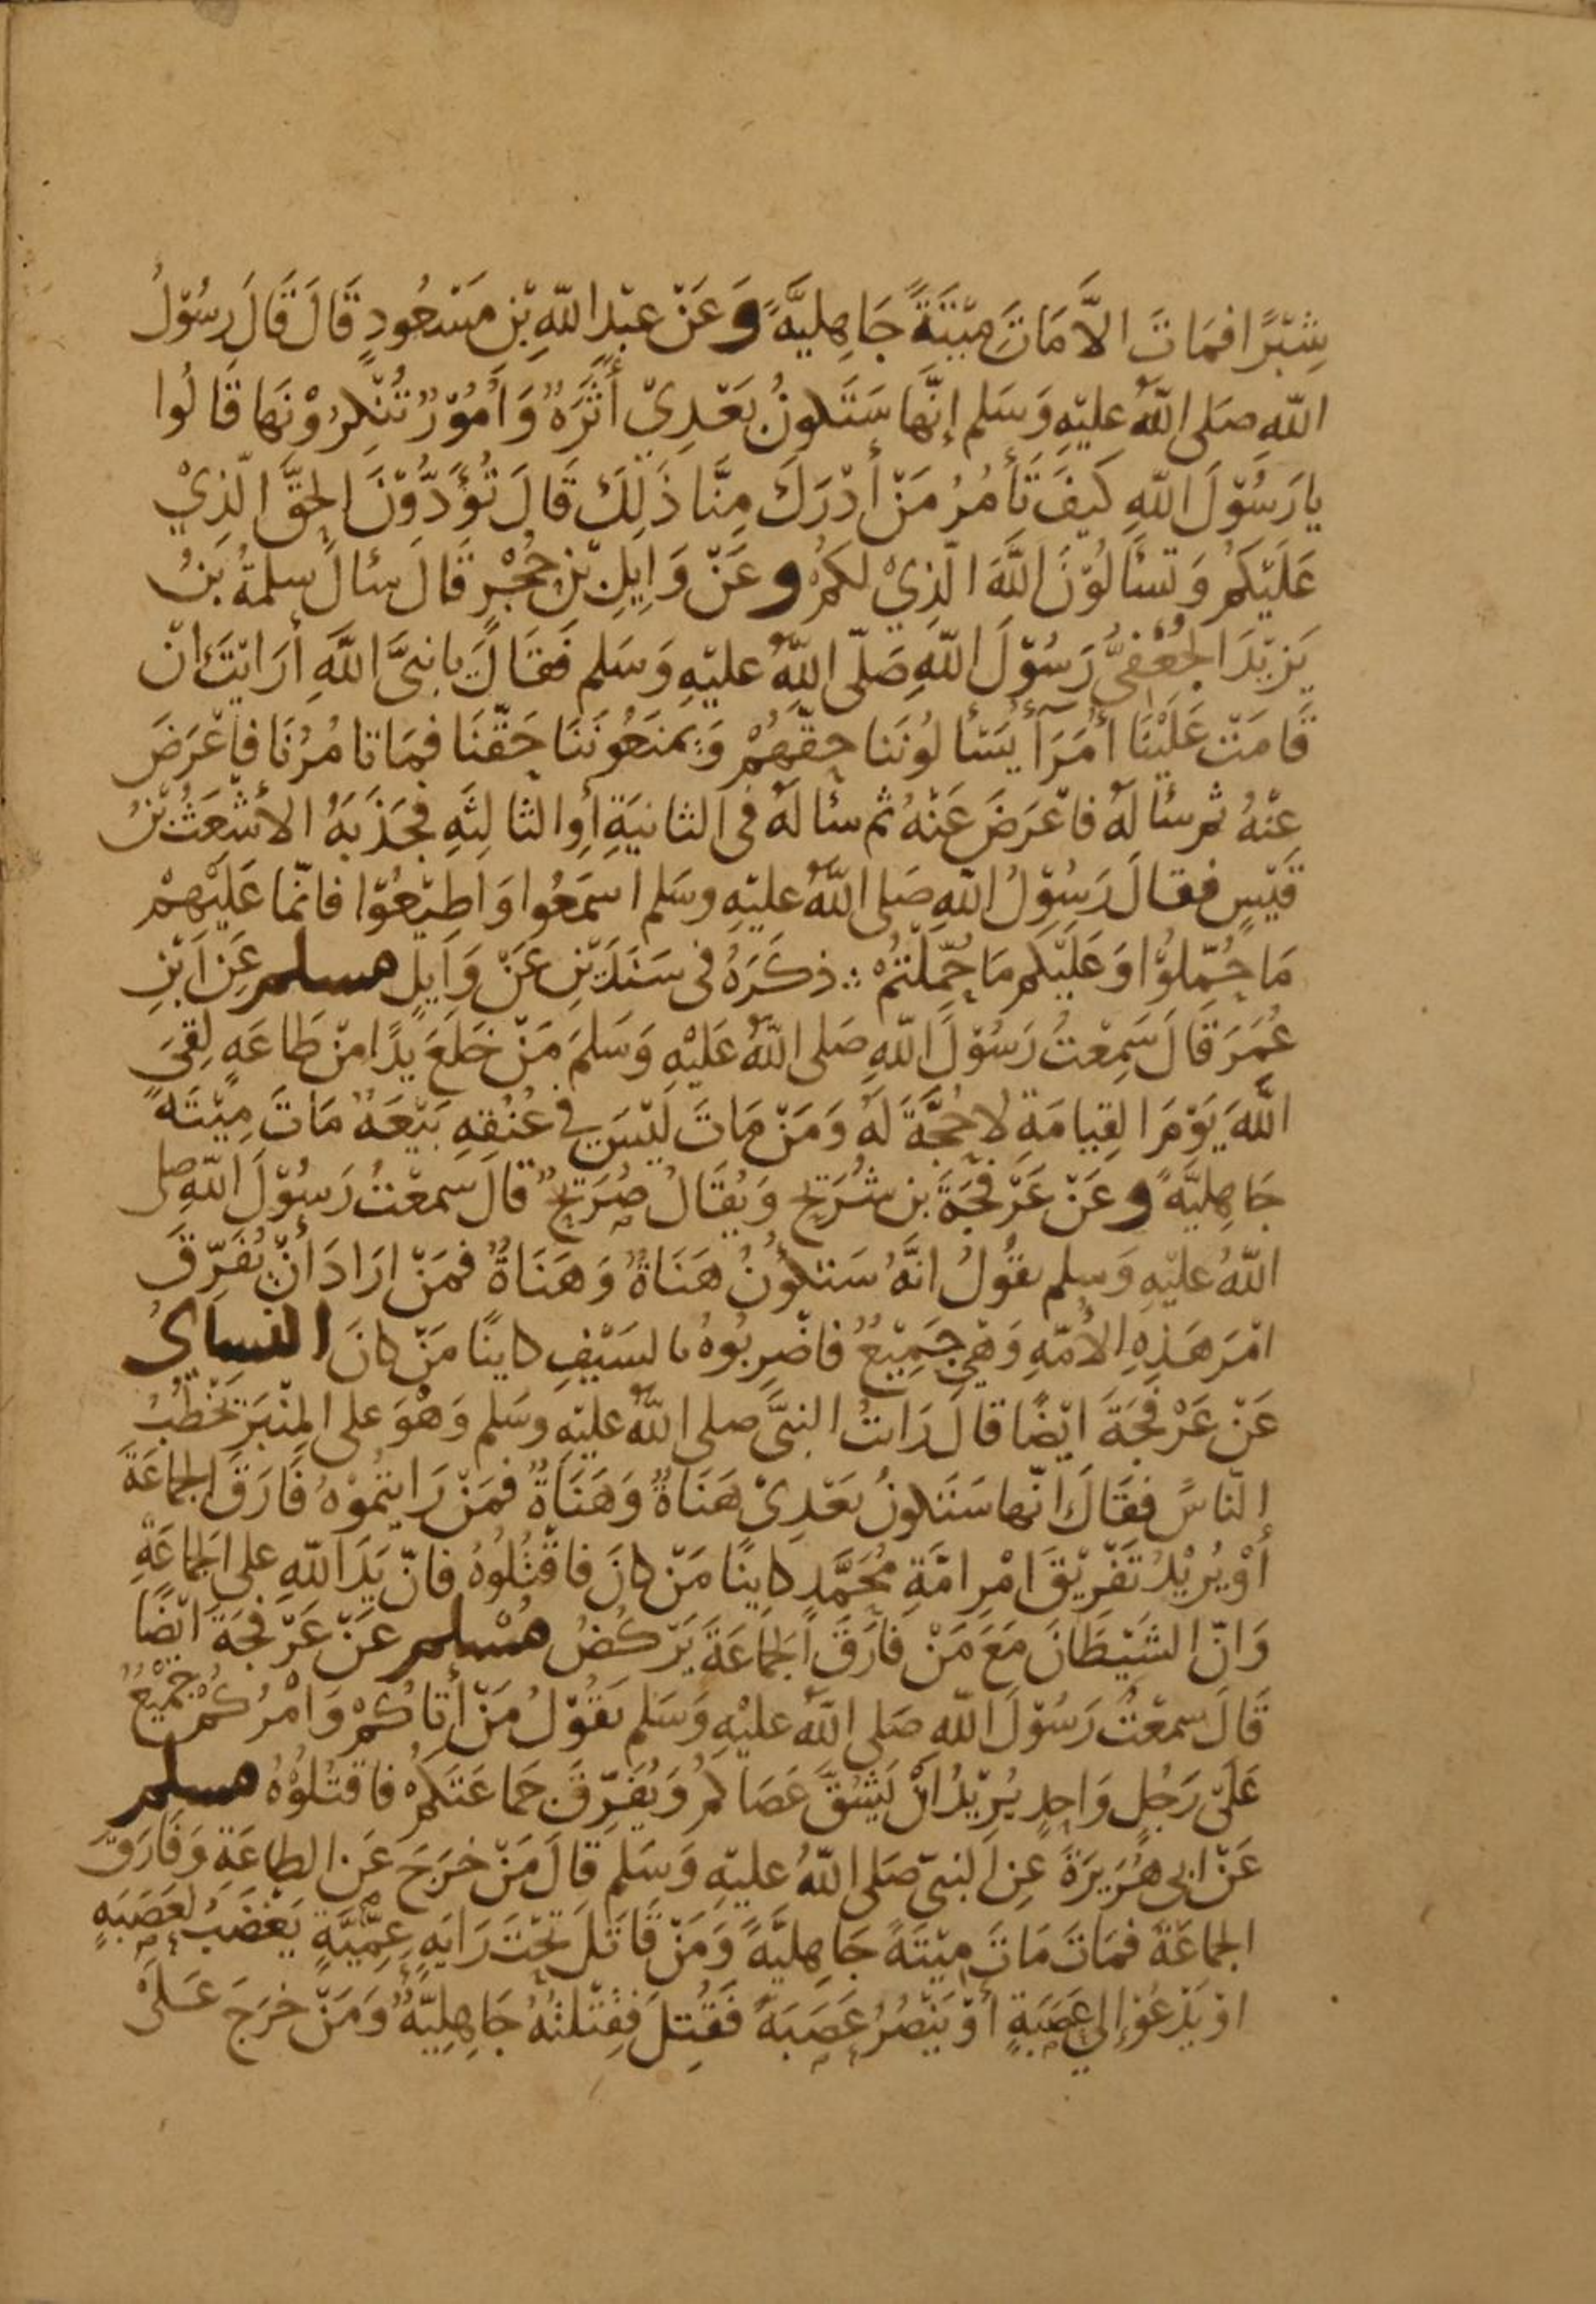 شِبْرًا فمَاتَ الاَّ مَاتَ مِيْتَةً جَاهِليَّةً وَعَنْ عبْدِ اللّهِ بْنِ مَسْعُودٍ قَالَ قَالَ رسُوْلُ
اللّهِ صَلى اللّهُ عليْهِ وَسَلم إنّهَا سَتَكونُ بَعْدِيْ أَثَرَةٌ وَأُمُوْرٌ تُنْكِرُوْنَهَا قَالُوا
يا رَسُوْلَ اللّهِ كَيفَ تَأمُرُ مَنْ أدْرَكَ مِنَّا ذَلِكَ قَالَ تُؤَدُّوْنَ الحَقَّ الّذِيْ
عَلَيْكُمْ وَتَسئَالُوْنَ اللَّهَ الّذِيْ لكمْ وعَنْ وَايِلِ بْنِ حُجْرٍ قَالَ سئالَ سلمةُ بْنُ
يَزِيْدَ الجُعْفِيُّ رَسُوْلَ اللّهِ صَلّى اللّهُ عليْهِ وَسَلم فَقَالَ يا نبيَّ اللَّهِ أرَايْتَ انْ
قَامَتْ عَلَيْنَا أُمَرَآءُ يَسْأَلوُنَنا حقَّهُمْ وَيَمنَعُونَنَا حَقّنَا فمَا تا مُرُنَا فاعْرَضَ
عنْهُ ثم سئالَهُ فاعْرَضَ عَنْهُ ثم سئالَهُ فى الثانيَةِ أوِ الثالِثَةِ فجَذَبَهُ الأشْعَثُ بْنُ
قَيْسٍ فقالَ رَسُوْلُ اللّهِ صَلى اللّهُ عليْهِ وسَلم اسمَعُوا وَاطِيْعُوْا فانّمَا عَلَيْهمْ
مَا حُمِّلوُا وَعَلَيْكم مَا حُمِّلْتُمْ ∴ ذكَرَهُ فى سَنَدَيْنِ عَنْ وَايِلٍ مسلم عَنِ ابْنِ
عُمَرَ قَالَ سَمِعْتُ رَسُوْلَ اللّهِ صَلى اللّهُ عَلَيْهِ وَسَلمَ مَنْ خَلعَ يَدًا مِنْ طَاعَةٍ لَقِيَ
اللَّهَ يَوْمَ القِيامَةِ لا حُجَّةَ لَهُ وَمَنْ مَاتَ لَيْسَ في عُنُقِهِ بَيْعَةٌ مَاتَ مِيْتَةً
جَاهِليَّةً وعَنْ عَرْفَجَةَ بن شُرَيْحٍ وَيُقَالُ صُرَيْحٌ قالَ سَمعْتُ رَسُوْلَ اللّهِ صلى
اللّهُ عليْهِ وَسلم يقُولُ انَّهُ سَتكوُنُ هَنَاةٌ وَهَنَاةٌ فمَنْ ارَادَ أنْ يُفَرِّقَ
امْرَ هَذِهِ الأُمّةِ وَهِيَ جَمِيْعٌ فاضْرِبُوهُ بالسَيْفِ كاينًا مَنْ كانَ النسايُ
عَنْ عَرْفَجَةَ ايْضًا قالَ رَايتُ النبيَّ صلى اللّهُ عليْهِ وسَلم وَهْوَ على المِنْبَرِ يَخْطُبُ
النّاسَ فقَالَ انّها سَتَكونُ بَعْدِىْ هَنَاةٌ وَهَنَاةٌ فمَنْ رَايتُموْهُ فَارَقَ الجماعَةَ
أوْ يُرِيْدُ تَفْرِيْقَ امْرِ امّةِ مُحَمَّدٍ كاينًا مَنْ كانَ فاقْتُلُوهُ فانّ يَدَ اللّهِ على الجماعَةِ
وَانّ الشَيْطَانَ مَعَ مَنْ فَارَقَ الجمَاعَةَ يَرْكُضُ مُسْلم عَنْ عَرْفَجَةَ ايْضًا
قَالَ سمعْتُ رَسُوْلَ اللّهِ صَلى اللّهُ عليْهِ وَسَلم يَقُوْلُ مَنْ أتَاكُمْ وَامْرُكُمْ جَمِيْعٌ
عَلَى رَجُلٍ وَاحِدٍ يُرِيْدُ انْ يَشُقَّ عَصَاكمْ وَيُفَرِّقَ جمَاعَتَكمْ فاقتُلوُهُ مسلم
عَنْ ابى هُرَيرَةَ عَنِ النبيّ صَلى اللّهُ عليْهِ وَسَلم قَالَ مَنْ خرَجَ عَنِ الطاعَةِ وَفَارَقَ
الجماعَةَ فمَاتَ مَاتَ مِيْتَةً جَاهِليَّةً وَمَنْ قَاتَلَ تَحْتَ رَايَةٍ عِمِّيَّةٍ يَغْضَبُ لعَصَبَةٍ
اوْ يَدْعُوْ إلى عَصَبَةٍ أوْ يَنْصُرُ عَصَبَةً فَقُتِلَ فقِتْلتُهُ جَاهِلِيَّةٌ وَمَنْ خرَجَ عَلَىْ